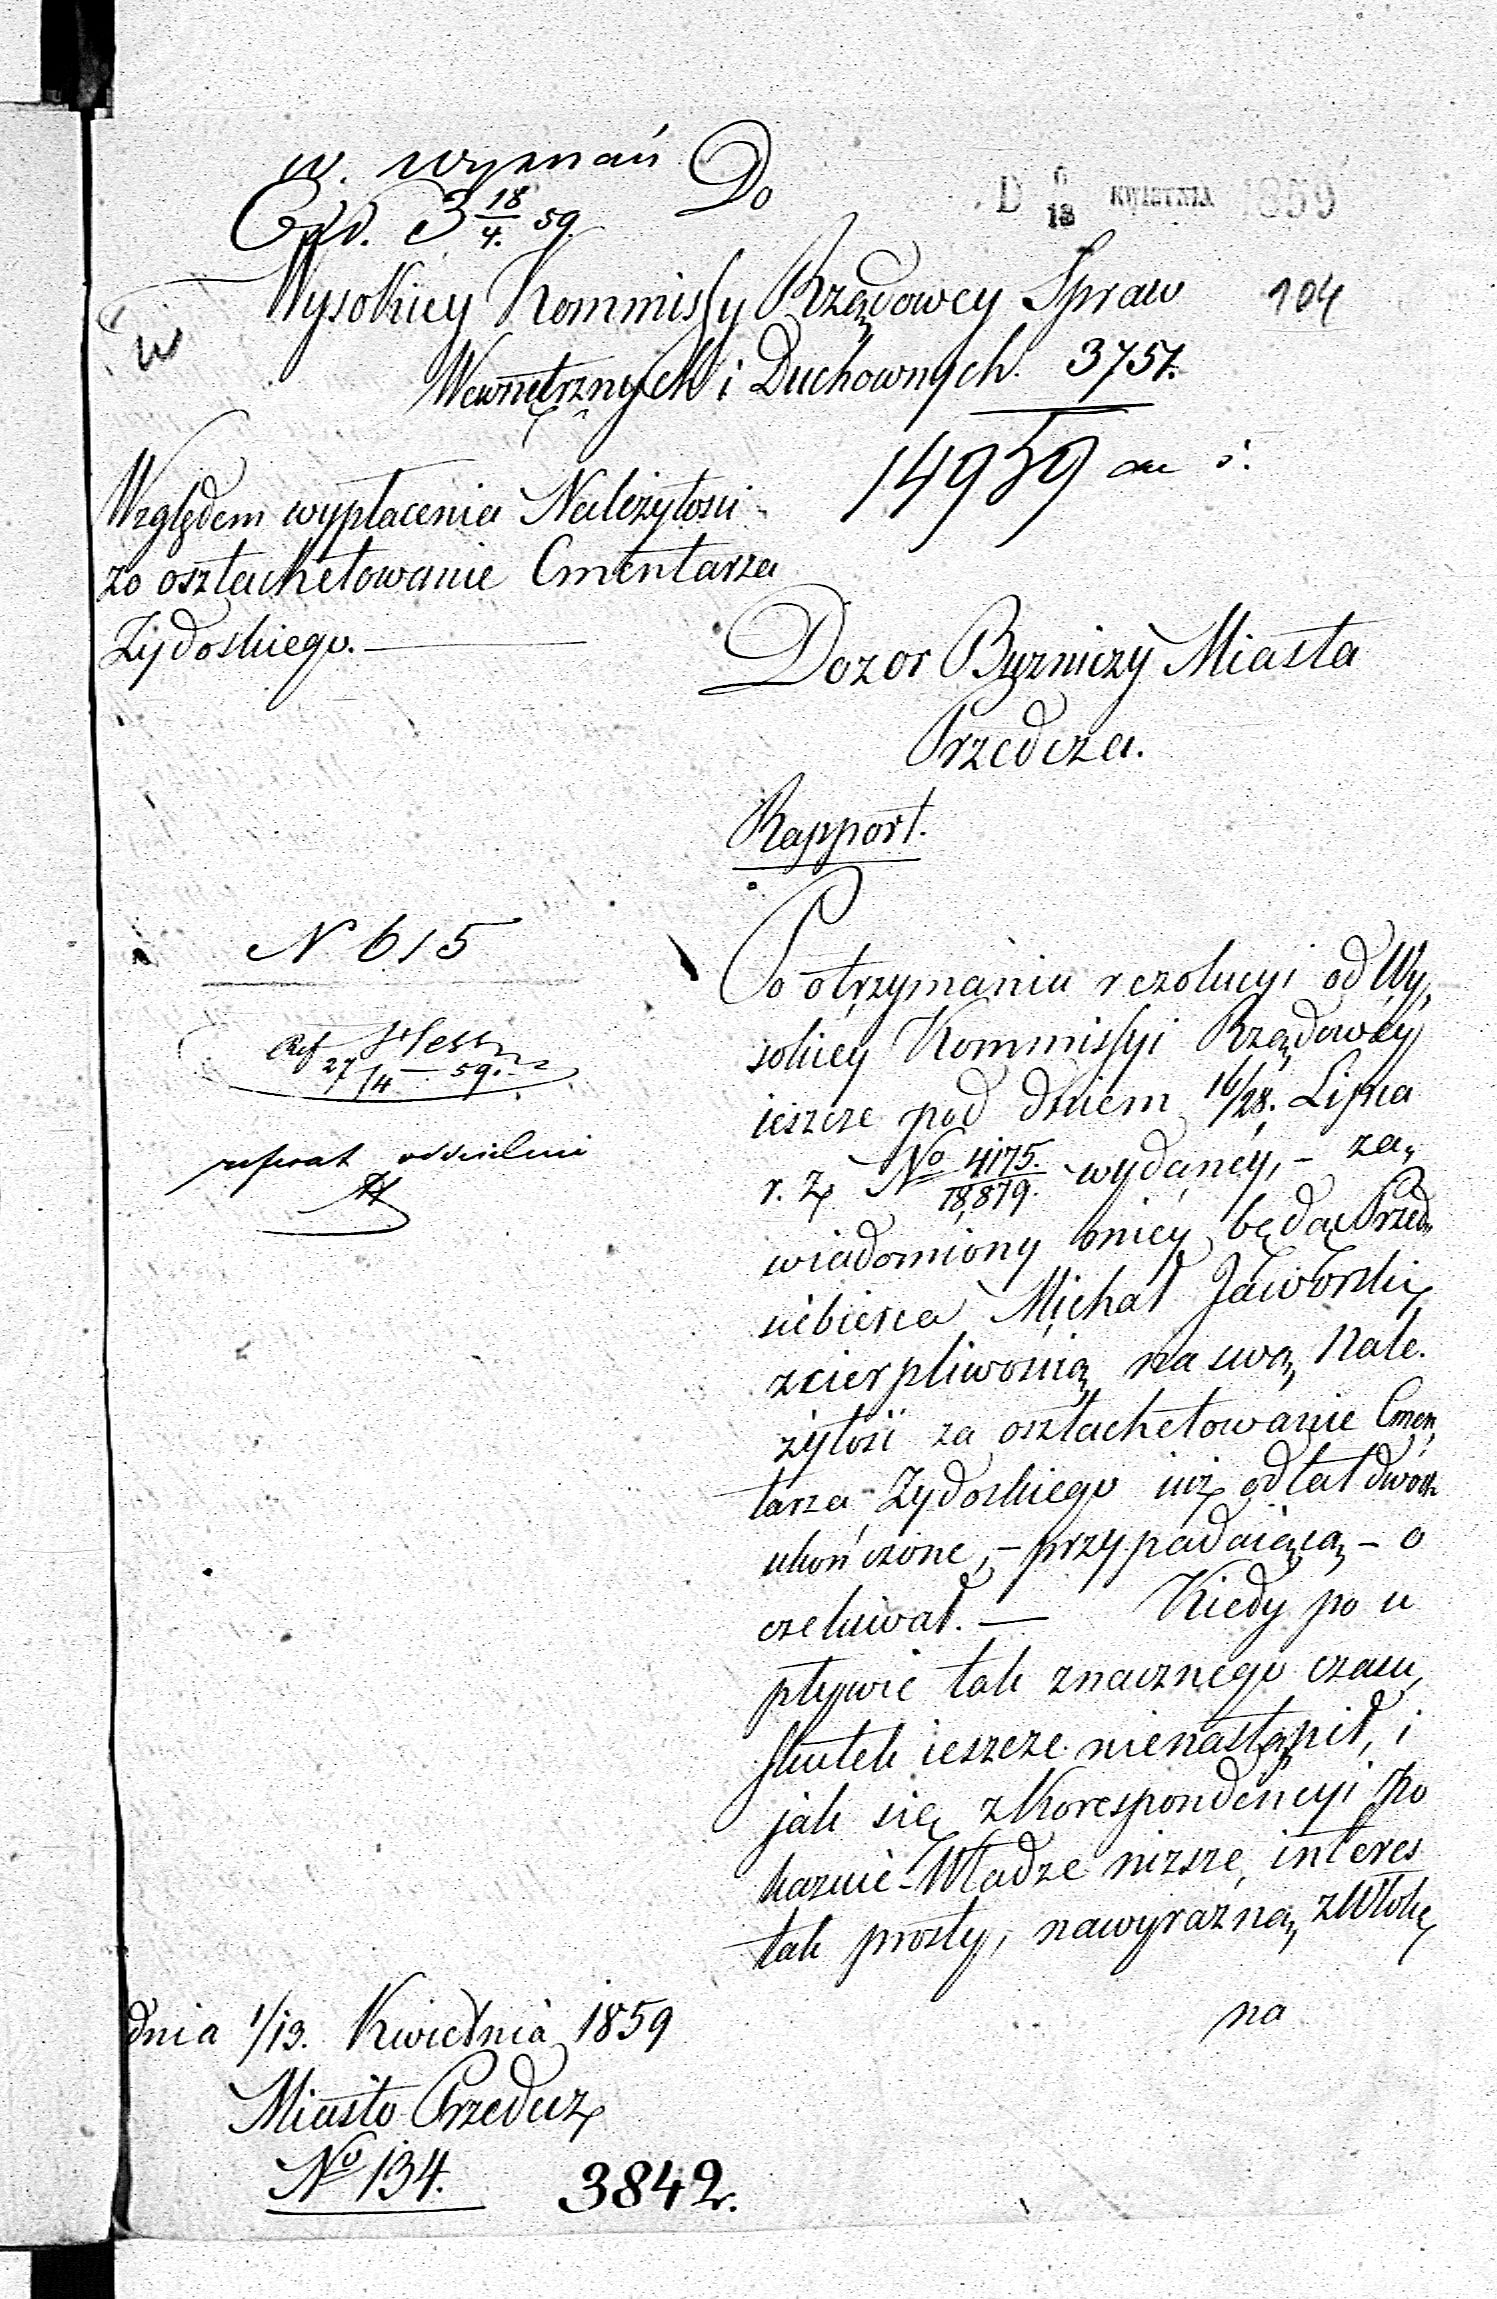 w. wyznań
Do
D 6/18 KWIETNIA 1859
Exp. 3 18/4. 59.
Wysokiey Kommissyi Rządowey Spraw
104
w
Wewnętrznych i Duchownych.
3751.
14959
Względem wypłacenia Należytości
za osztachetowanie Cmentarza
Żydoskiego.—
Dozor Bozniczy Miasta
Przedcza.
Rapport.
N 615
Ref
27/4 — 59.
referat oddzielnie
Po otrzymaniu rezolucyi od Wy,
sokiey Kommissyi Rządowey
ieszcze pod dniem 16/28. Lipca
r. z. No 4175./18,879. wydaney, – za,
wiadomiony oniey będąc Przed,
siebierca Michał Jaworski,
zcierpliwością na swą Nale.
żytość za osztachetowanie Cmen,
tarza Żydoskiego iuż od lat dwóch
ukończone, – przypadaiącą – o
czekiwał. — Kiedy po u
pływie tak znacznego czasu,
skutek ieszcze nienastąpił, i
jak się zKorespondencyi Po
kazuie – Władze nizsze, interes
tak prosty, nawyrazną zwłokę
na
dnia 1/13. Kwietnia 1859
Miasto Przedecz
No 134.
3842.